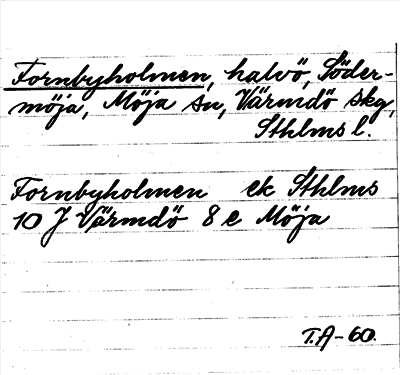 Fornbyholmen, halvö, Söder-
möja, Möja sn, Värmdö skg,
Sthlms l.
Fornbyholmen ek Sthlms
10 J Värmdö 8 e Möja
T.A-60.